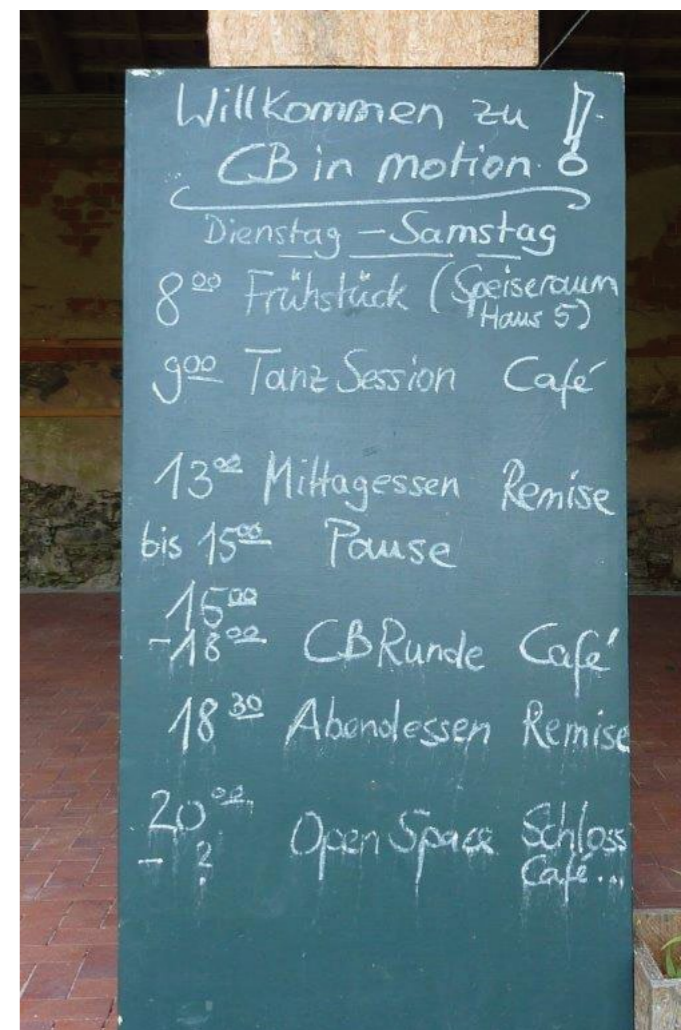 Willkommen zu
CB in motion !
Dienstag – Samstag
8⁰⁰ Frühstück (Speiseraum
Haus 5)
9⁰⁰ Tanz Session Café
13⁰⁰ Mittagessen Remise
bis 15⁰⁰ Pause
15⁰⁰
-18⁰⁰ CB Runde Café
18³⁰ Abendessen Remise
20⁰⁰ Open Space Schloss
- ? Café...